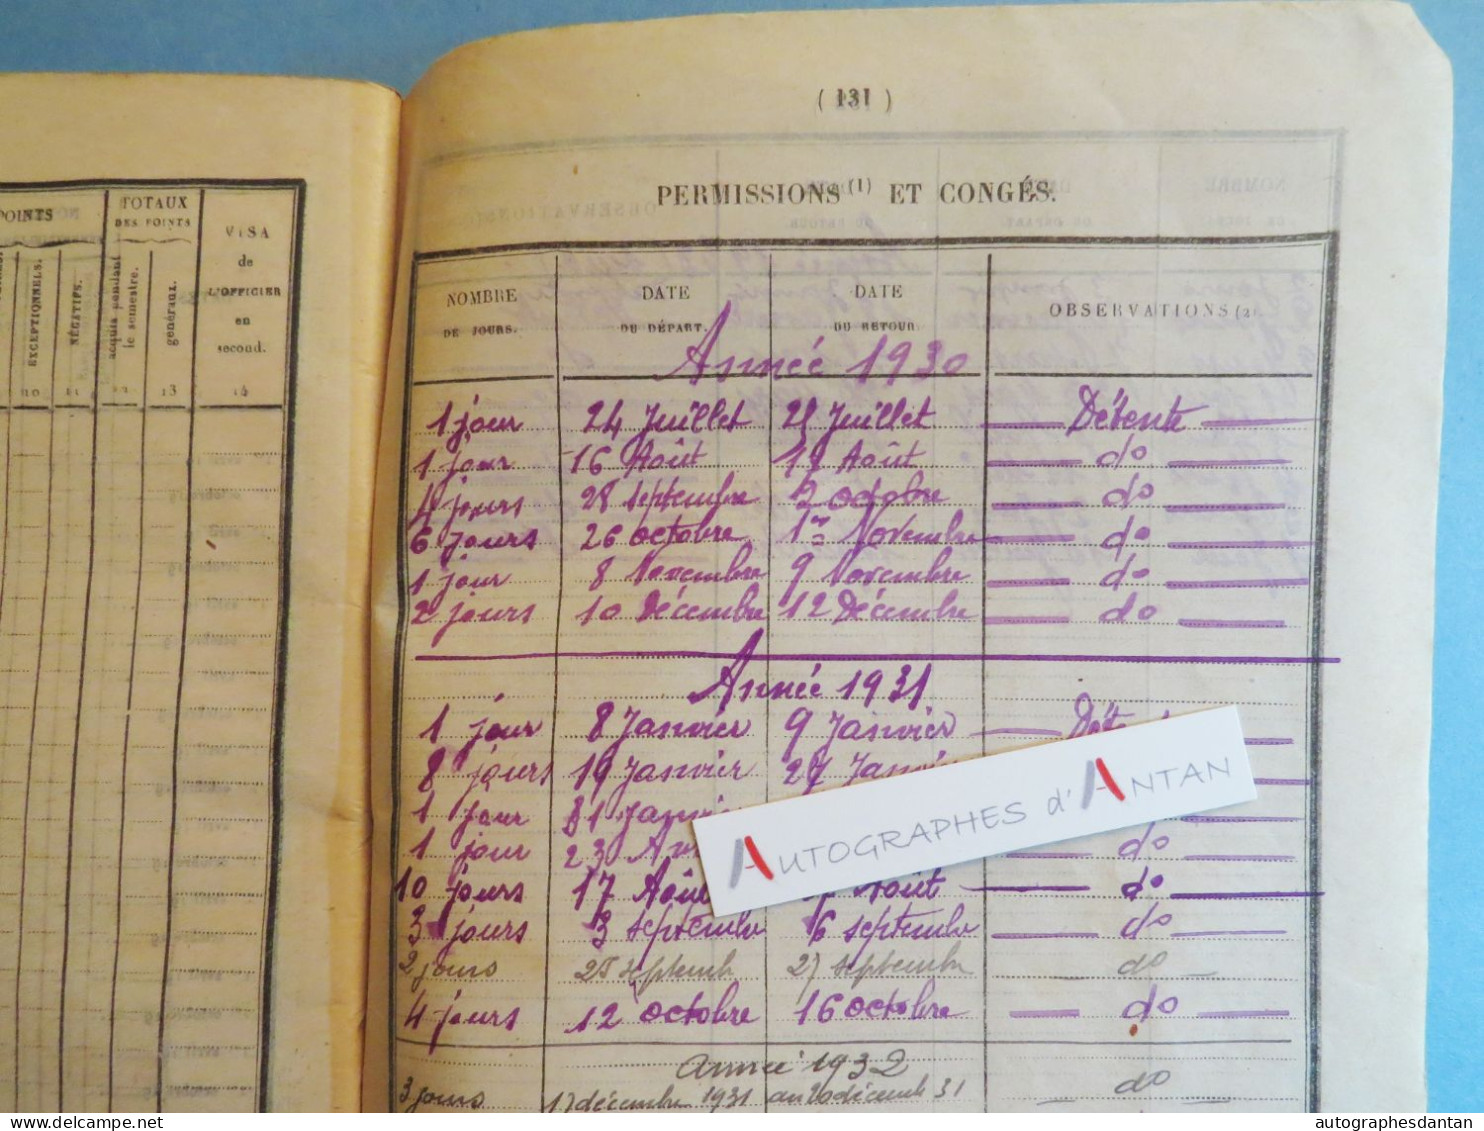 ( 131 )
PERMISSIONS (1) ET CONGÉS.
POINTS
TOTAUX
DES POINTS
VISA
de
L'OFFICIER
en
second.
EXCEPTIONNELS.
NÉGATIFS.
acquis pendant
le semestre.
généraux.
10 11 12 13 14
NOMBRE
DE JOURS.
DATE
DU DÉPART.
DATE
DU RETOUR.
OBSERVATIONS (2).
Année 1930
1 jour 24 Juillet 25 Juillet Détente
1 jour 16 Août 17 Août do
4 jours 28 septembre 2 octobre do
6 jours 26 octobre 1er Novembre do
1 jour 8 Novembre 9 Novembre do
2 jours 10 Décembre 12 Décembre do
Année 1931
1 jour 8 Janvier 9 Janvier
8 jours 19 Janvier 27
1 jour 31
1 jour 23 do
10 jours 17 Août Août do
3 jours 3 septembre 6 septembre do
2 jours 25 septemb 27 septembre do
4 jours 12 octobre 16 octobre do
Année 1932
3 jours 17 décembre 1931 au 20 décemb 31 do
AUTOGRAPHES d'ANTAN
delcampe.net
autographesdantan